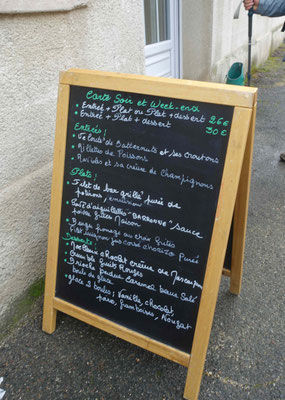 Carte Soir et Week-end
• Entrée + Plat ou Plat + dessert 26€
• Entrée + Plat + dessert 30€
Entrées:
• Velouté de Butternuts et ses croutons
• Rillettes de Poissons
• Ravioles et sa crème de Champignons
Plats:
• Filet de bar grillé purée de
potirons,
• Pavé d'aiguillettes "BARBARINE" sauce
poivre frites Maison
• Burger fromage au choix frites
Filet mignon jus corsé chorizo Purée
Desserts:
• Moelleux chocolat crème de Marrons
• Crumble fruits Rouges
• Brioche perdue Caramel beurre Salé
boule de glace
• glace 2 boules: Vanille, chocolat,
poire, framboises, Nougat